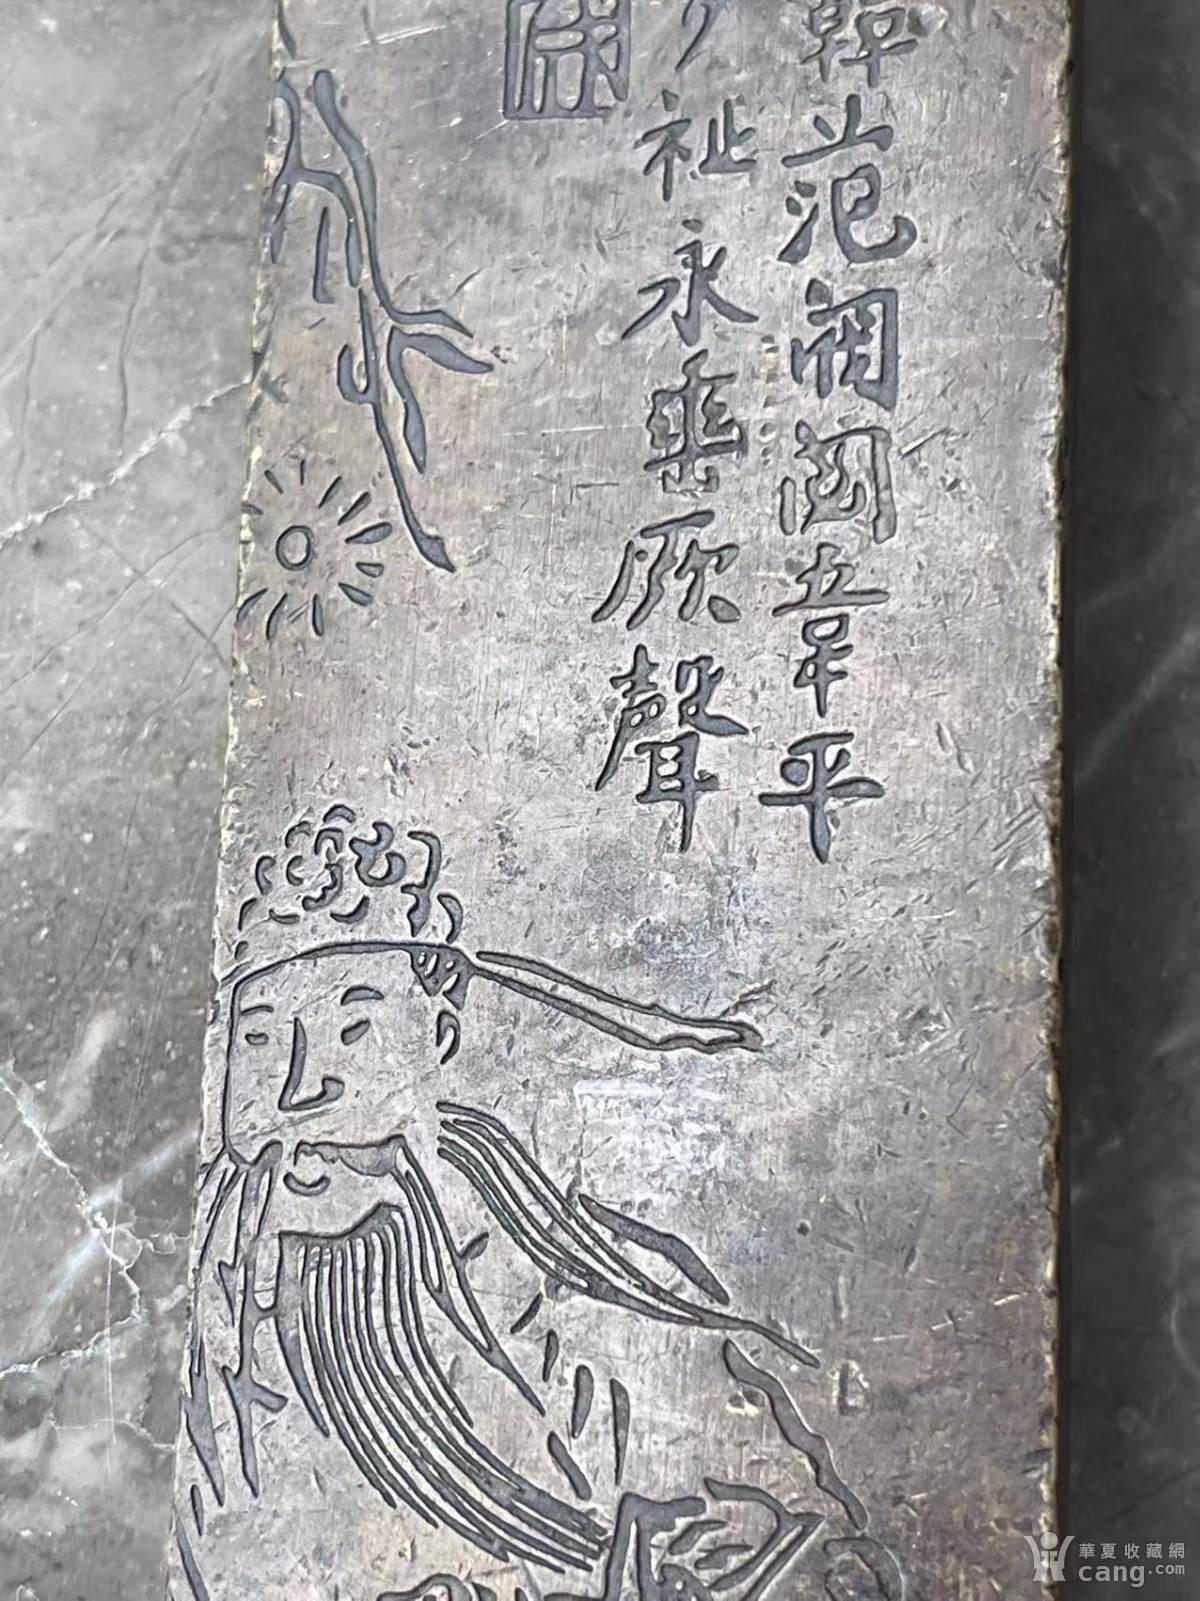 韓范韋平
祉永垂厥聲
華夏收藏網
cang.com